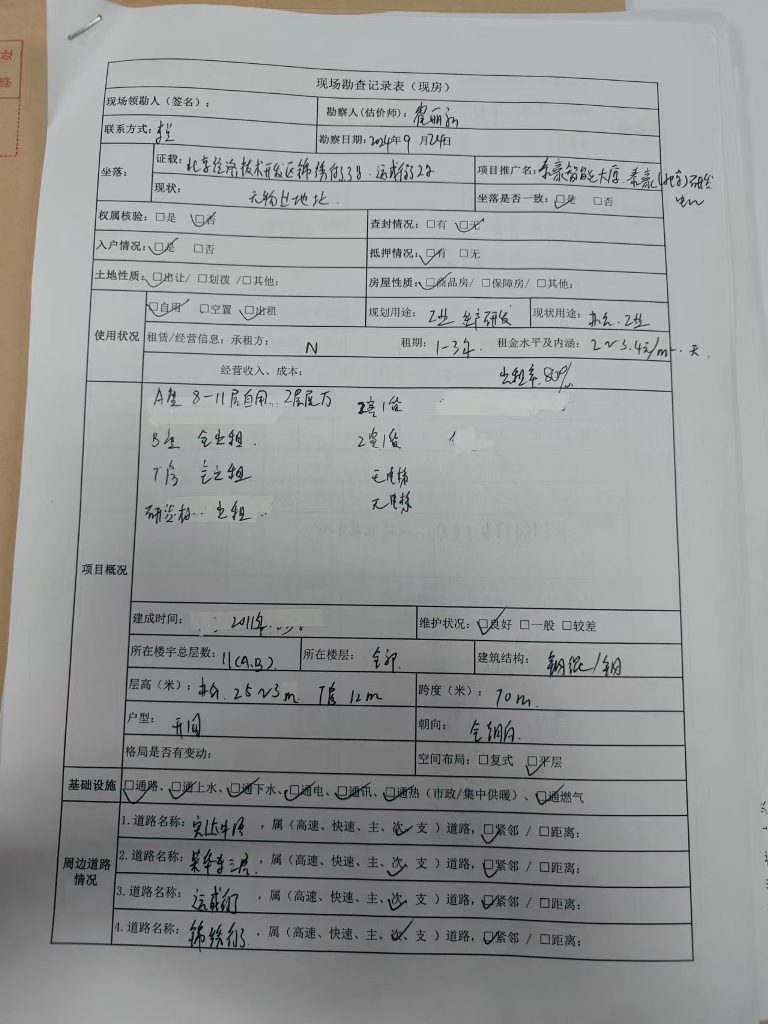 现场勘查记录表（现房）
现场领勘人（签名）： 勘察人(估价师)：
联系方式： 勘察日期：2024年9月24日
坐落： 证载：北京经济技术开发区锦绣街3号、运成街2号 项目推广名：泰豪智能大厦、泰豪(北京)研发
现状：无物业地址. 坐落是否一致：☑是 □否
权属核验：□是 ☑否 查封情况：□有 ☑无
入户情况：☑是 □否 抵押情况：☑有 □无
土地性质：☑出让/ □划拨 /□其他： 房屋性质：☑商品房/ □保障房/ □其他：
使用状况 ☑自用 □空置 ☑出租 规划用途：工业 生产研发 现状用途：办公、工业
租赁/经营信息：承租方： N 租期：1-3年. 租金水平及内涵：2~3.4元/m²·天
经营收入、成本： 出租率80%
A座 8-11层自用 2层 2客1货
B座 全出租. 2客1货
厂房 全出租 无电梯
出租 无电梯
项目概况
建成时间： 2011年 维护状况：☑良好 □一般 □较差
所在楼宇总层数：11(A.B). 所在楼层：全部 建筑结构：钢混/钢
层高（米）：办公. 2.5~3m 厂房 12m 跨度（米）：70m.
户型：开间 朝向：全朝向.
格局是否有变动： 空间布局：□复式 ☑平层
基础设施 ☑通路、☑通上水、☑通下水、☑通电、☑通讯、☑通热（市政/集中供暖）、☑通燃气
周边道路情况
1.道路名称： ，属（高速、快速、主、次、支）道路，☑紧邻 / □距离：
2.道路名称：荣华南三路，属（高速、快速、主、次、支）道路，☑紧邻 / □距离：
3.道路名称：运成街 ，属（高速、快速、主、次、支）道路，☑紧邻 / □距离：
4.道路名称：锦绣街，属（高速、快速、主、次、支）道路，☑紧邻 / □距离：